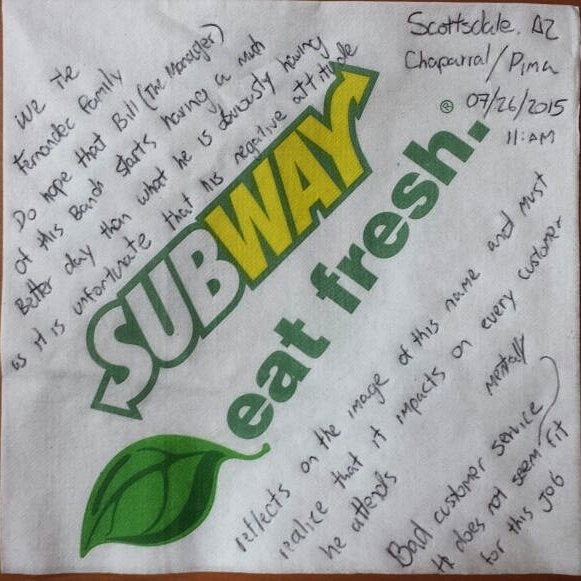 Scottsdale. AZ
Chaparral/Pima
07/26/2015
11:AM
We the
Fernandez Family
Do hope that Bill (The Manager)
of this Banch starts having a much
Better day than what he is obviously having
as it is unfortunate that his negative attitude
SUBWAY
eat fresh.
®
reflects on the image of this name and must
realize that it impacts on every customer
he attends
Bad customer service
He does not seem mentally fit
for this job